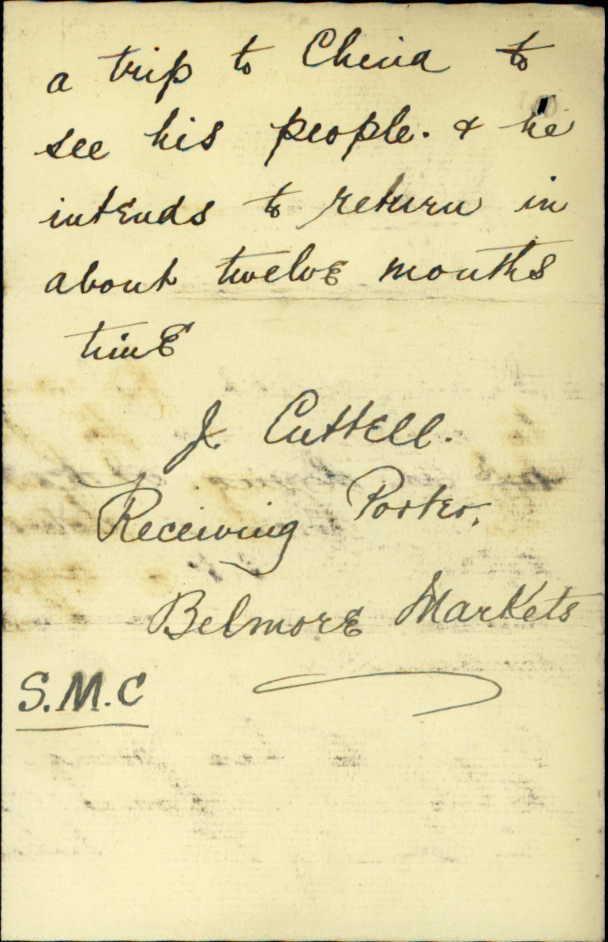 a trip to China to
see his people. & he
intends to return in
about twelve months
time
J. Cuttell.
Receiving Porter.
Belmore Markets
S.M.C